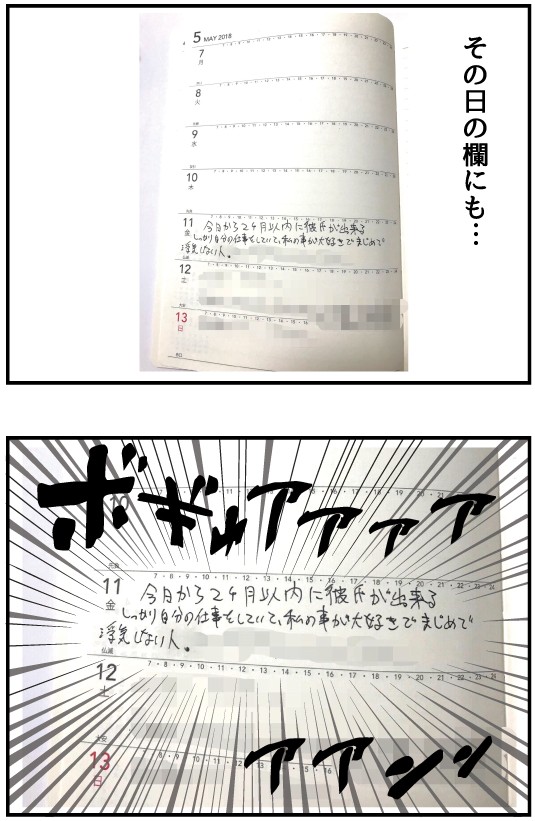 その日の欄にも…
5 MAY 2018
7
月
8
火
9
水
10
木
11
金
今日から2ヶ月以内に彼氏が出来る
しっかり自分の仕事をしていて、私の事が大好きでまじめで
浮気しない人。
仏滅
12
土
大安
13
日
ボギュアアアア
7・8・9・10・11・12・13・14・15・16・17・18・19・20・21・22・23・24
11
金
今日から2ヶ月以内に彼氏が出来る
しっかり自分の仕事をしていて、私の事が大好きでまじめで
浮気しない人。
仏滅
7・8・9・10・11・12・13・14・15・16・17・18・19・20・21・22・23・24
12
土
大安
13
日
アアンッ